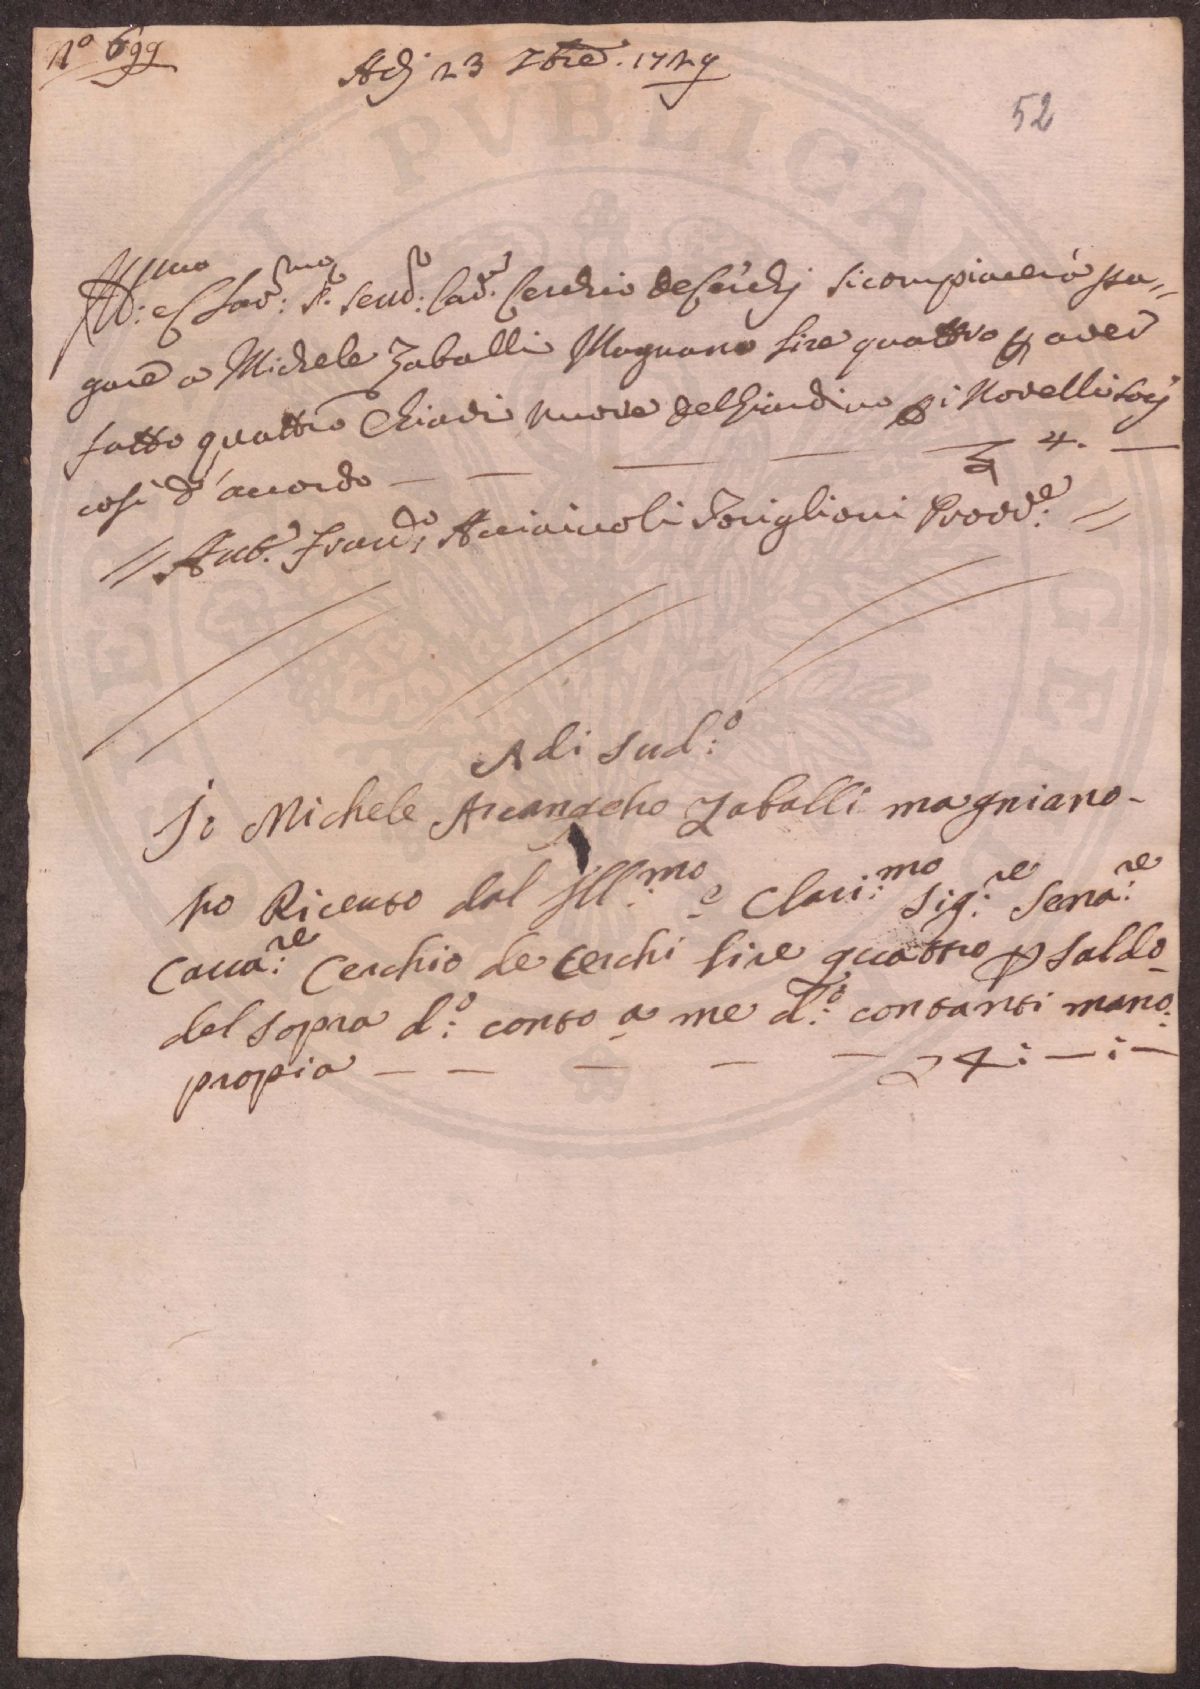 N.o 699
Adì 23 7bre. 1729
52
Ill:mo e Clar:mo Sr. Senre: Cavre. Cerchio de Cerchj si compiacerà pa,,
gare a Michele Zaballi Magnano lire quattro p aver
fatto quattro Chiavi nuove del Giardino p i Novelli socj
così d'accordo — — — — — £ 4. —
// Ant.o Franc.o Acciaiuoli Toriglioni Provv.e: //
Adi sud:o
Io Michele Arcangelo Zaballi magniano-
ho Riceuto dal Ill:mo e Clari:mo Sig:re Sena:re
Caua:re Cerchio de Cerchi lire quattro p saldo
del sopra d:o conto a me d:o contanti mano:
propia — — — — — £ 4: — : —
PVBLICA